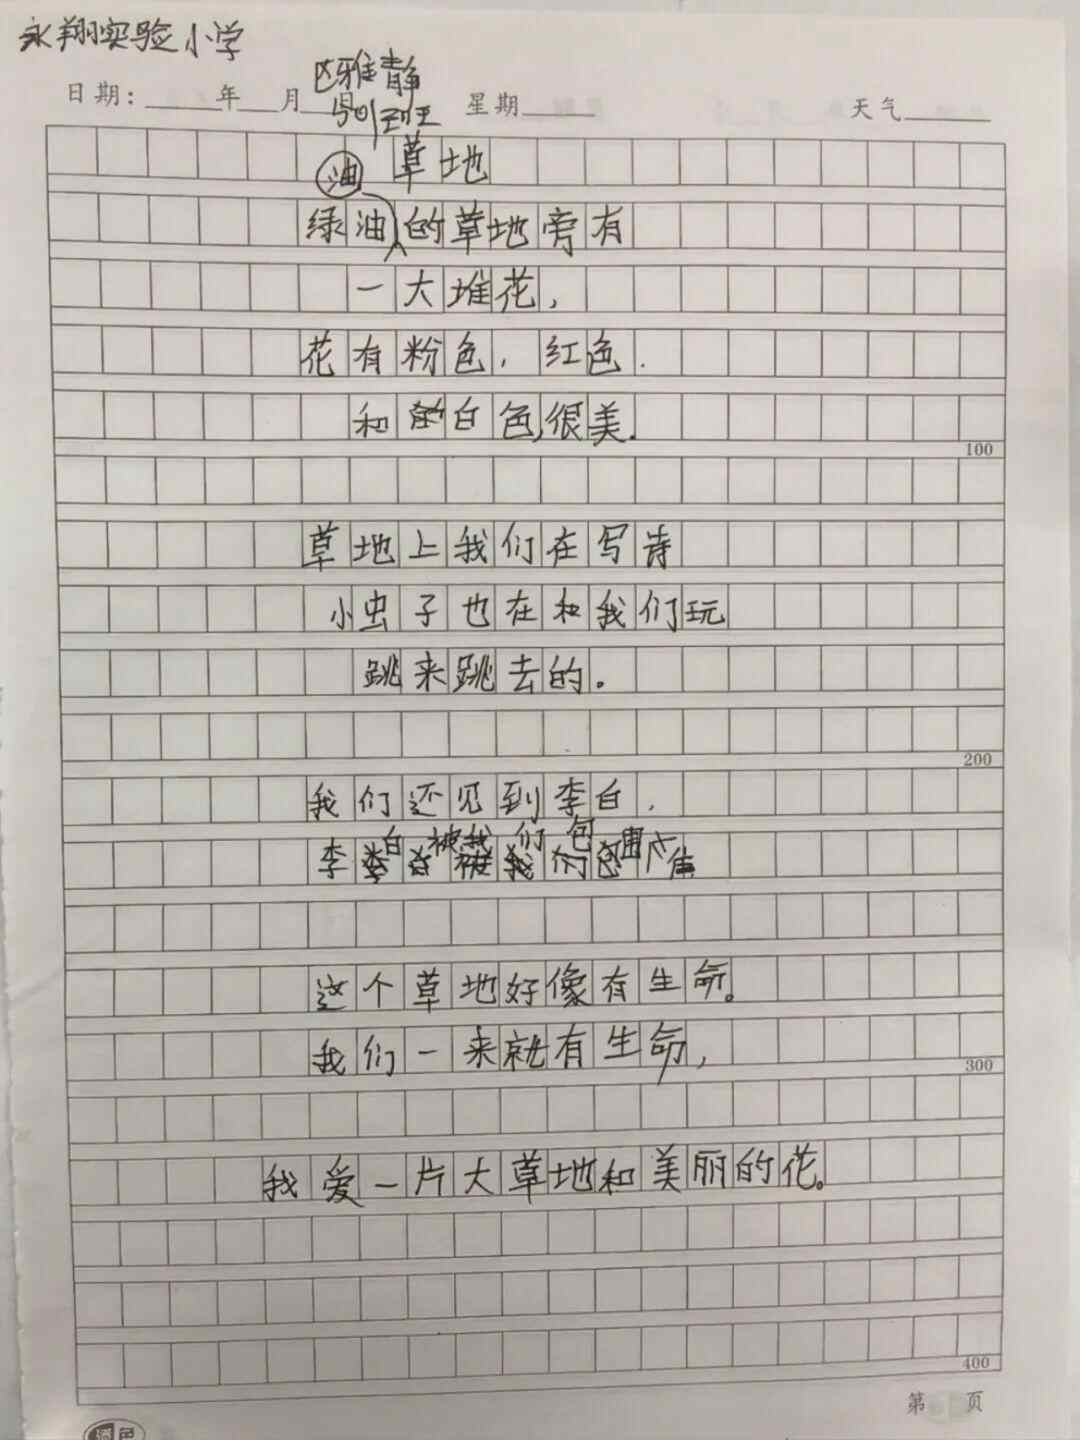 永翔实验小学
区雅静
日期：年月日 星期 天气
301班
草地
绿油油的草地旁有
一大堆花，
花有粉色，红色．
和白色,很美．
100
草地上我们在写诗
小虫子也在和我们玩
跳来跳去的。
200
我们还见到李白，
李白被我们包围
这个草地好像有生命。
我们一来就有生命，
300
我爱一片大草地和美丽的花。
400
第 页